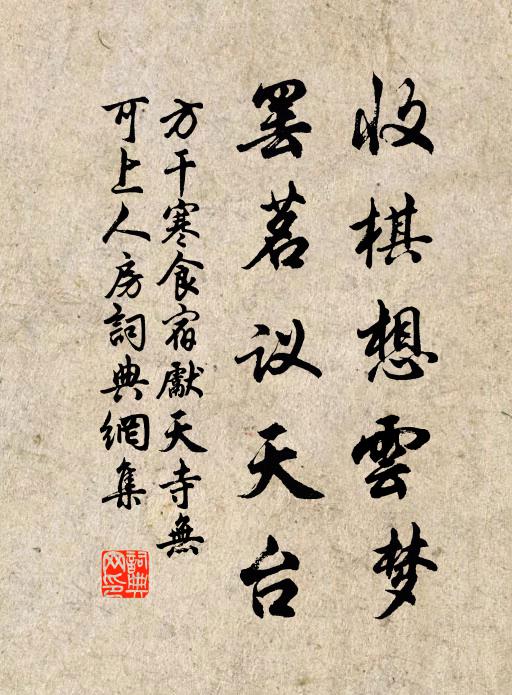 收棋想雲梦
罢茗议天台
方干寒食宿獻天寺無
可上人房詞典網集
詞典
网印